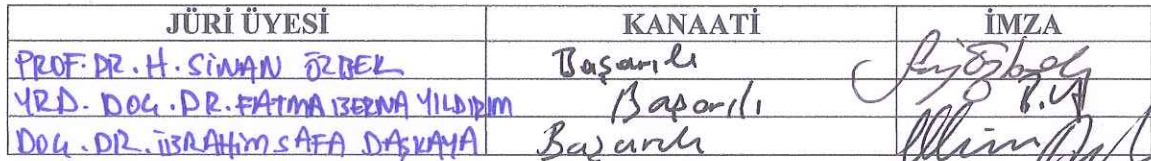 JÜRİ ÜYESİ KANAATİ İMZA
PROF. DR. H. SİNAN ÖZBEK Başarılı
YRD. DOÇ. DR. FATMA BERNA YILDIRIM Başarılı
DOÇ. DR. İBRAHİM SAFA DAŞKAYA Başarılı